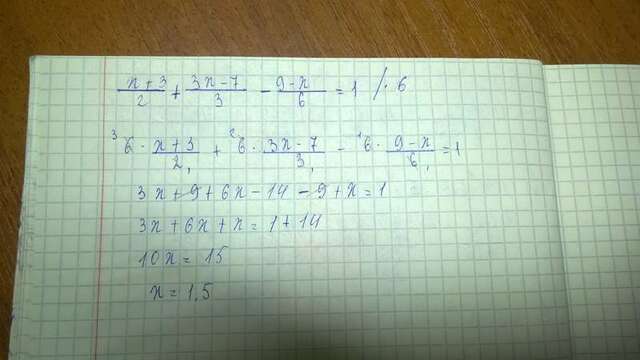 (x+3)/2 + (3x-7)/3 - (9-x)/6 = 1 /·6
³6 · (x+3)/2₁ + ²6 · (3x-7)/3₁ - ¹6 · (9-x)/6₁ = 1
3x+9+6x-14-9+x=1
3x+6x+x=1+14
10x=15
x=1.5